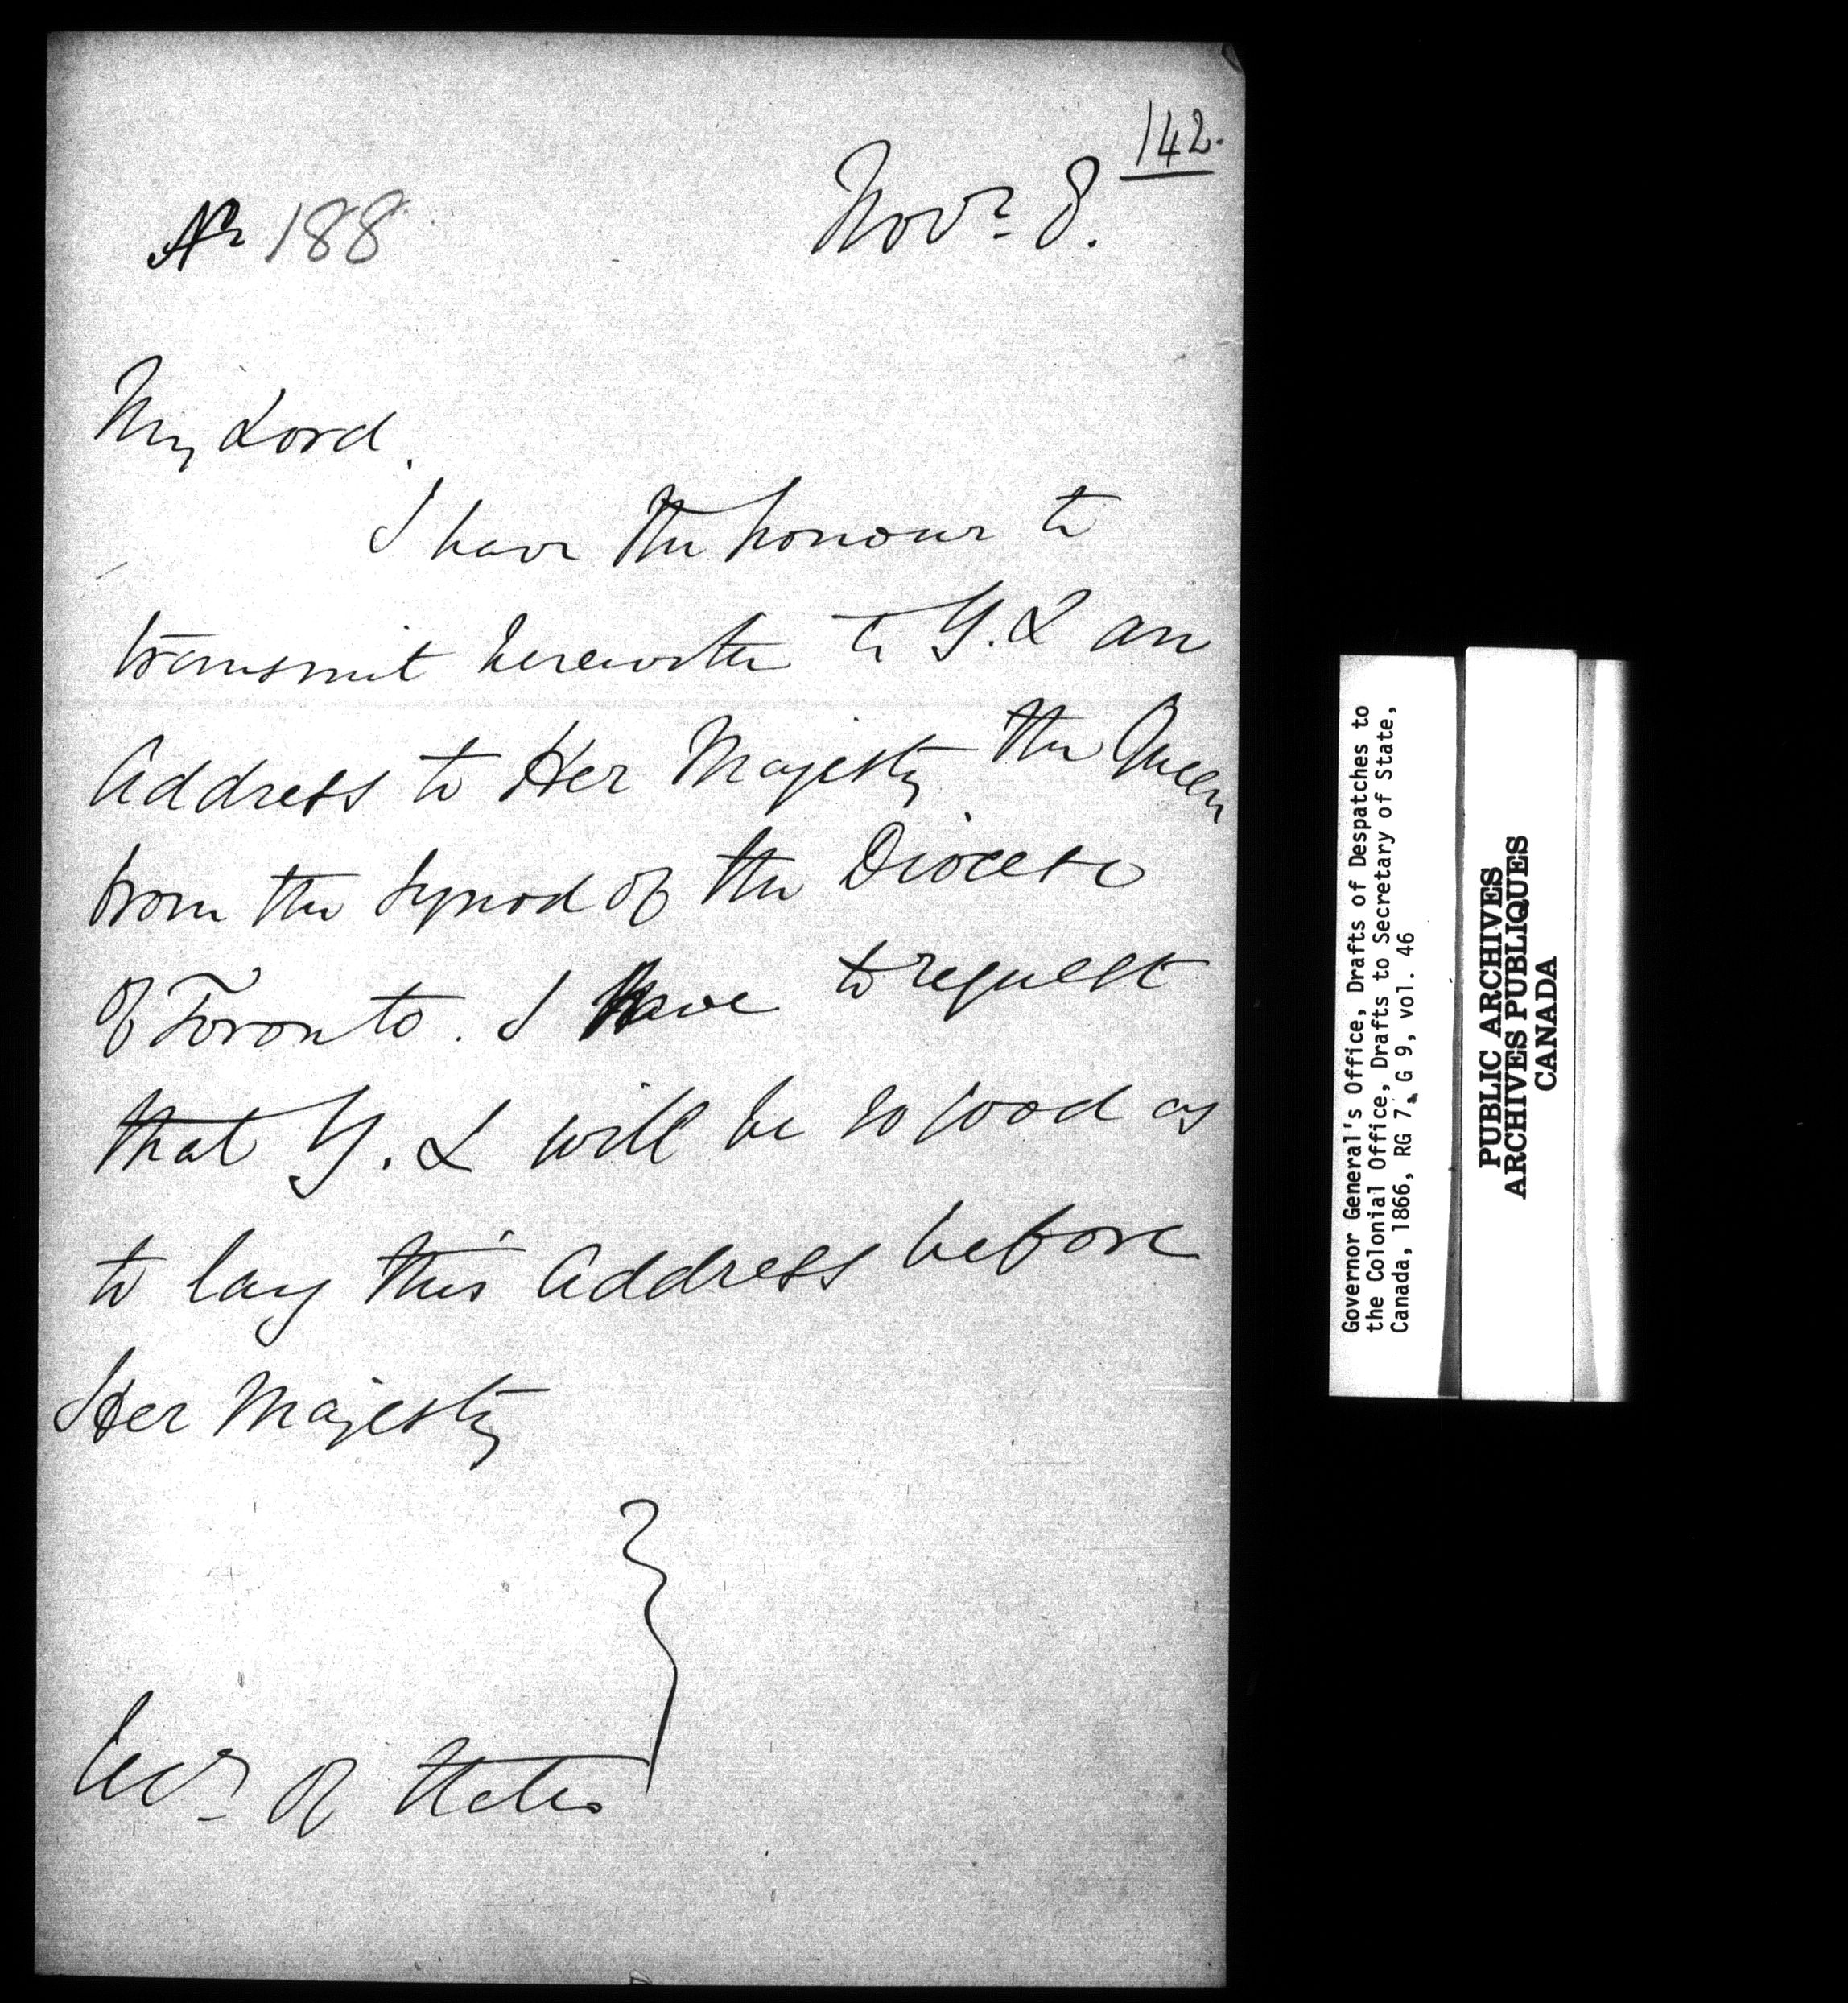 142.
No 188
Novr 8.
My Lord.
I have the honour to
transmit herewith to Y. L an
Address to Her Majesty the Queen
from the Synod of the Diocese
of Toronto. I have to request
that Y. L will be so good as
to lay this Address before
Her Majesty
Secy of State
Governor General's Office, Drafts of Despatches to
the Colonial Office, Drafts to Secretary of State,
Canada, 1866, RG 7, G 9, vol. 46
PUBLIC ARCHIVES
ARCHIVES PUBLIQUES
CANADA